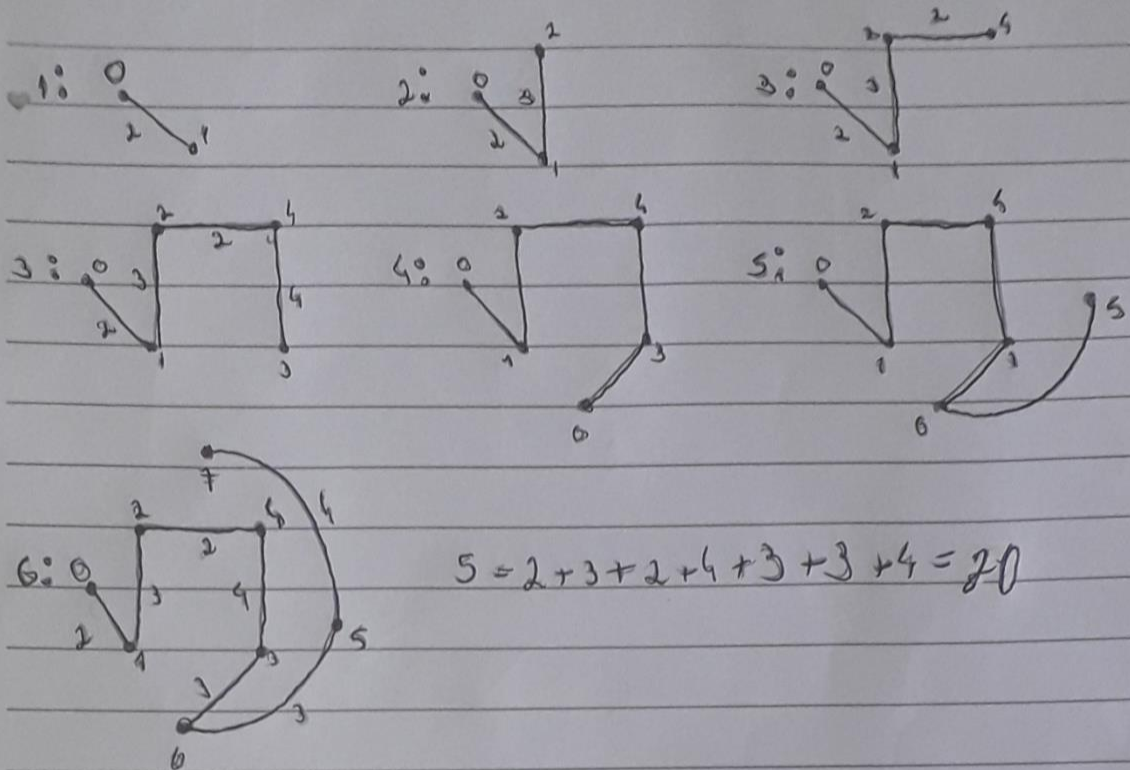 1: 0 2 1
2: 0 2 3 2 1
3: 0 2 3 2 2 4 1
3: 0 2 3 2 2 4 4 1 3
4: 0 2 4 1 3 6
5: 0 2 4 1 3 5 6
7
6: 0 2 3 2 2 4 4 4 1 3 5 3 3 6
5 = 2 + 3 + 2 + 4 + 3 + 3 + 4 = 20